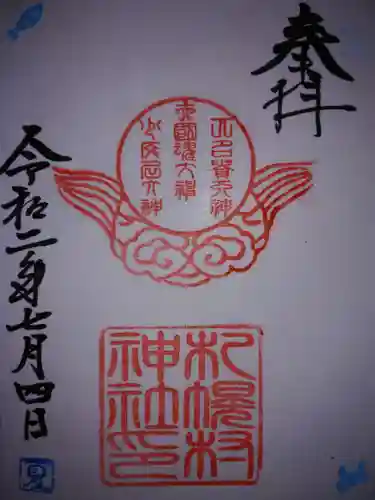 奉拝
大己貴大神
大國魂大神
少彦名大神
札幌村
神社印
令和二年七月四日
夏